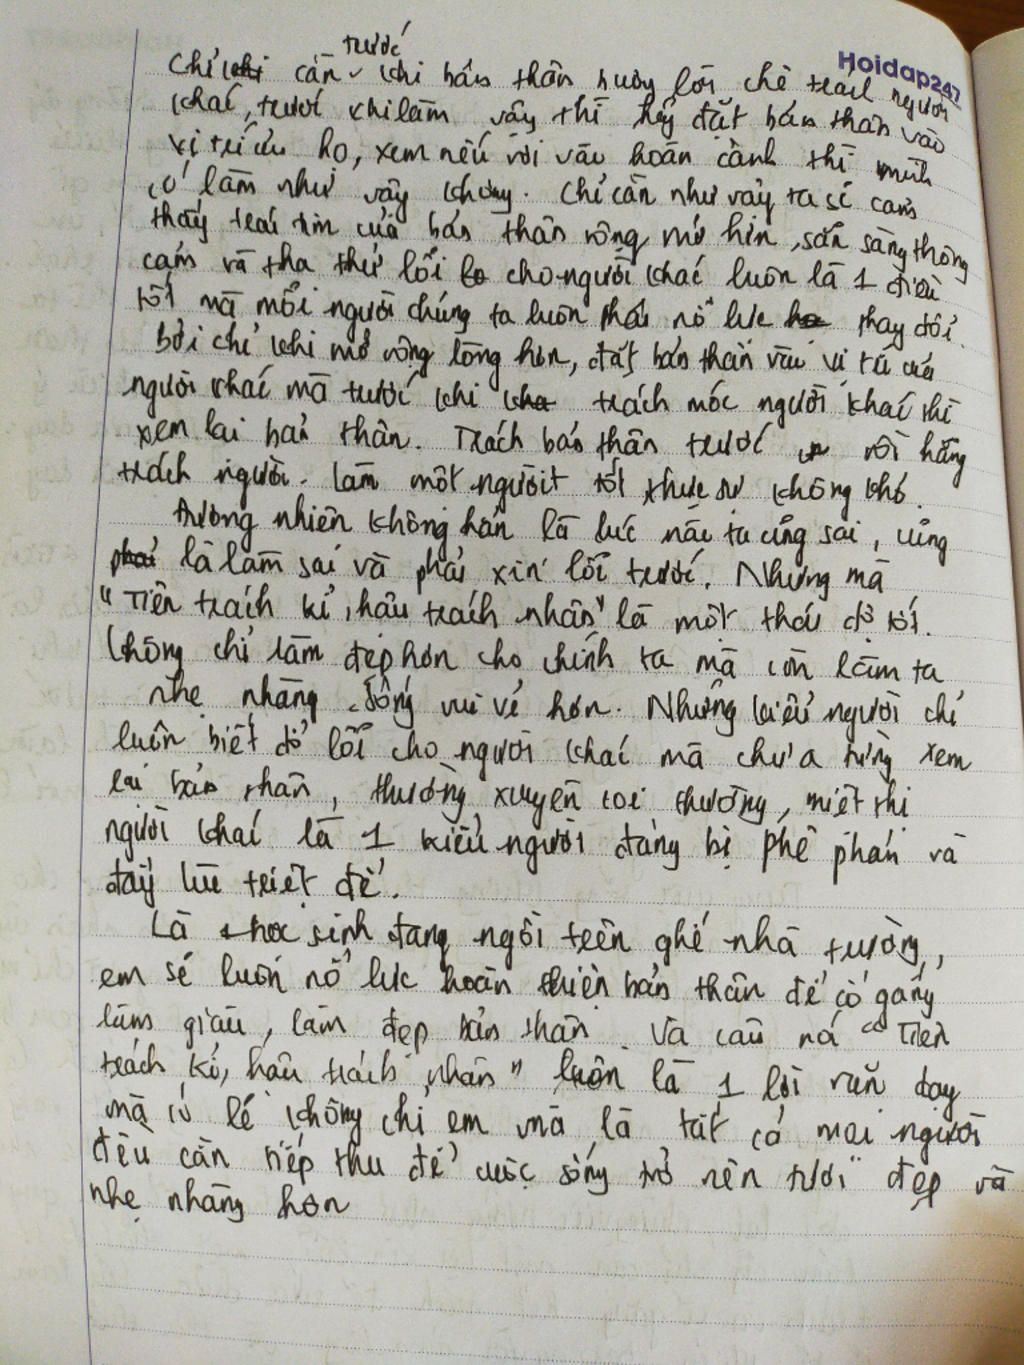 Hoidap247
trước
Chỉ khi cần khi bản thân buông lời chê trách người
khác, trước khi làm vậy thì hãy đặt bản thân vào
vị trí của họ, xem nếu rơi vào hoàn cảnh thì mình
có làm như vậy không. Chỉ cần như vậy ta sẽ cảm
thấy trái tim của bản thân rộng mở hơn, sẵn sàng thông
cảm và tha thứ lỗi lo cho người khác luôn là 1 điều
tốt mà mỗi người chúng ta luôn phải nỗ lực thay đổi.
Bởi chỉ khi mở rộng lòng hơn, đặt bản thân vào vị trí của
người khác mà trước khi trách móc người khác thì
xem lại bản thân. Trách bản thân trước rồi hẵng
trách người. Làm một người tốt thực sự không khó.
Đương nhiên không hẳn là lúc nào ta cũng sai, cũng
phải là làm sai và phải xin lỗi trước. Nhưng mà
"Tiên trách kỉ, hậu trách nhân" là một thái độ tốt.
Không chỉ làm đẹp hơn cho chính ta mà còn làm ta
nhẹ nhàng, sống vui vẻ hơn. Những kiểu người chỉ
luôn biết đổ lỗi cho người khác mà chưa từng xem
lại bản thân, thường xuyên coi thường, miệt thị
người khác là 1 kiểu người đáng bị phê phán và
đẩy lùi triệt để.
Là học sinh đang ngồi trên ghế nhà trường,
em sẽ luôn nỗ lực hoàn thiện bản thân để cố gắng
làm giàu, làm đẹp bản thân. Và câu nói "Tiên
trách kỉ, hậu trách nhân" luôn là 1 lời răn dạy
mà có lẽ không chỉ em mà là tất cả mọi người
đều cần tiếp thu để cuộc sống trở nên tươi đẹp và
nhẹ nhàng hơn